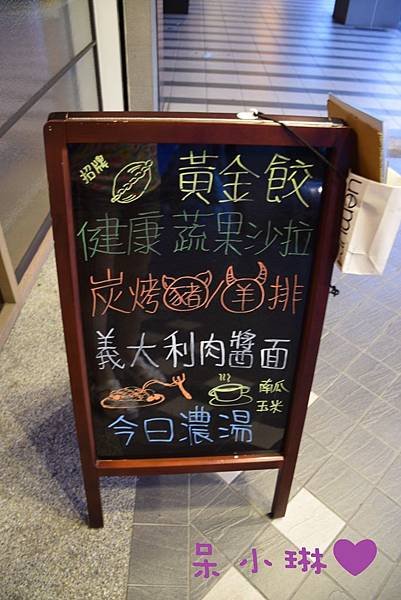 招牌
黃金餃
健康蔬果沙拉
炭烤豬/羊排
義大利肉醬面
南瓜
玉米
今日濃湯
呆小琳